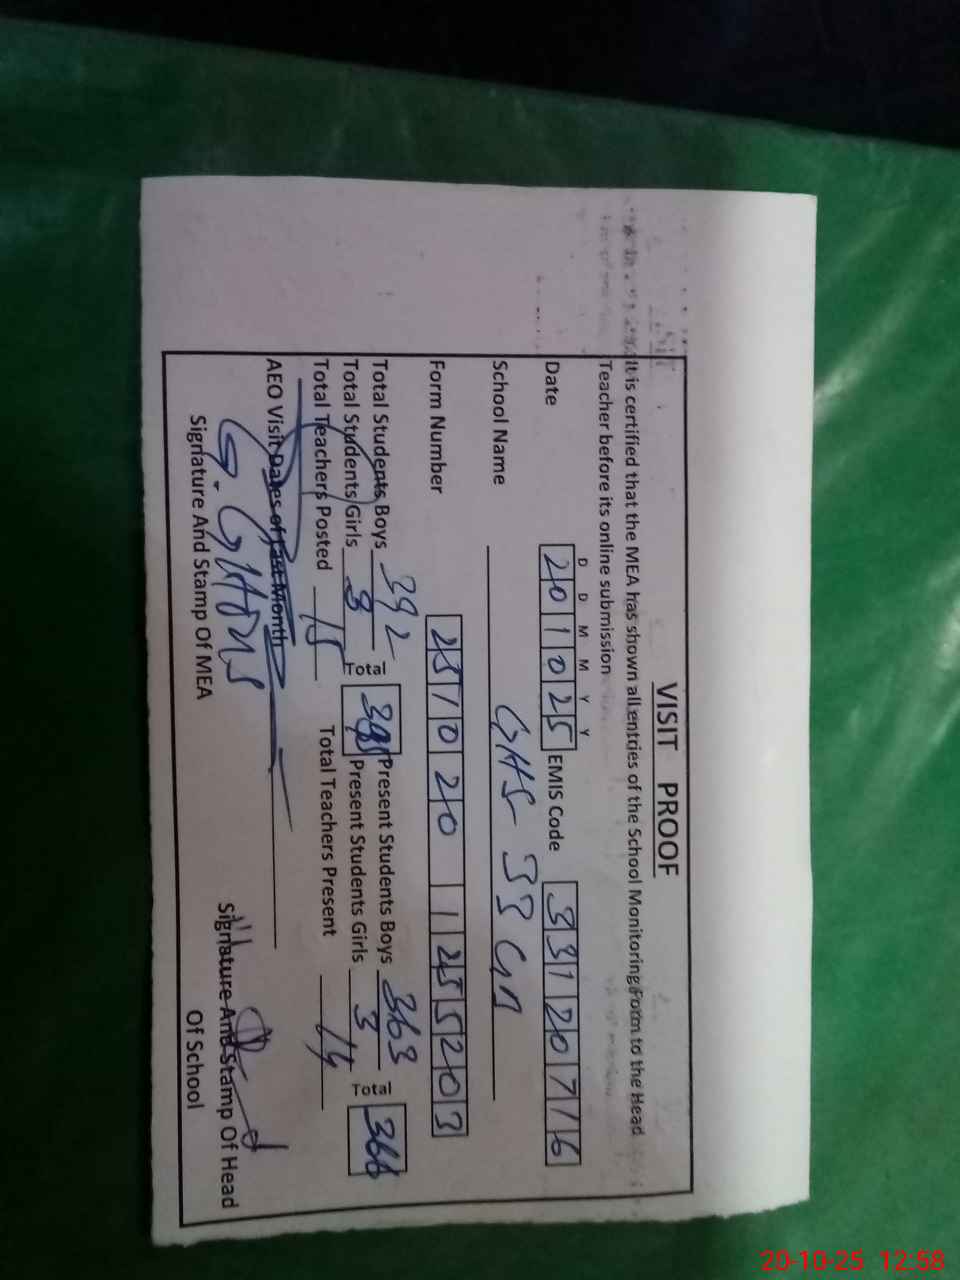 VISIT PROOF
It is certified that the MEA has shown all entries of the School Monitoring Form to the Head
Teacher before its online submission
D D M M Y Y
Date 201025 EMIS Code 33120716
School Name GHS 33 GD
Form Number
Total Students Boys 392 Present Students Boys 363
Total Students Girls Total Present Students Girls 3 Total 366
Total Teachers Posted 15 Total Teachers Present 14
AEO Visit Dates of Last Month
Signature And Stamp Of MEA Signature And Stamp Of Head
Of School
20-10-25 12:58